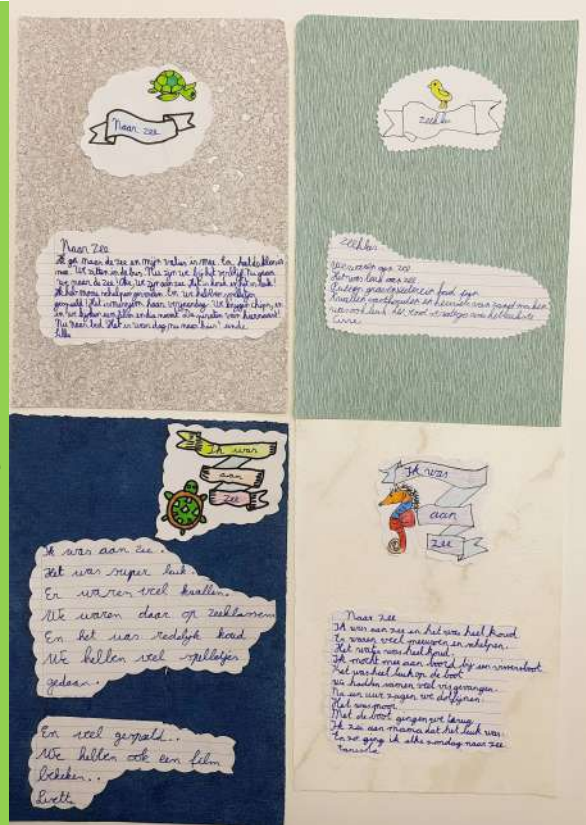 Naar zee
Naar Zee
Ik ga naar de zee en mijn valies is mee. En hal de klas is
mee. We zitten in de bus. Nu zijn we bij het verblijf. Nu gaan
we naar de zee! Oke, we zijn aan zee. Het is koud en het is leuk!
Ik heb mooie schelpen gevonden. En we hebben spelletjes
gespeeld! Het is morgen haar verjaardag. We krijgen chips, en
en we kijken een film en die noemt De piraten van hiernaast!
Nu naar bed. Het is een dag nu naar huis! einde
zeeklas
zeeklas
we waren aan zee
Het was leuk aan zee
putten graven
kwallen vasthouden en heuvels van zand maken
was ook leuk het was het leukste
Ik was
aan
zee
Ik was aan zee.
Het was super leuk.
Er waren veel kwallen.
We waren daar op zeeklassen
En het was redelijk koud
We hebben veel spelletjes
gedaan.
En veel gespeeld..
We hebben ook een film
bekeken..
Ik was
aan
zee
Naar zee
Ik was aan zee en het was heel koud
Er waren veel meeuwen en schelpen.
Het water was heel koud.
Ik mocht mee aan boord bij een vissersboot
Het was heel leuk op de boot
we hadden samen veel vis gevangen.
Na een uur zagen we dolfijnen.
Het was mooi
Met de boot gingen we terug
Ik zei aan mama dat het leuk was.
En zo ging ik elke zondag naar zee